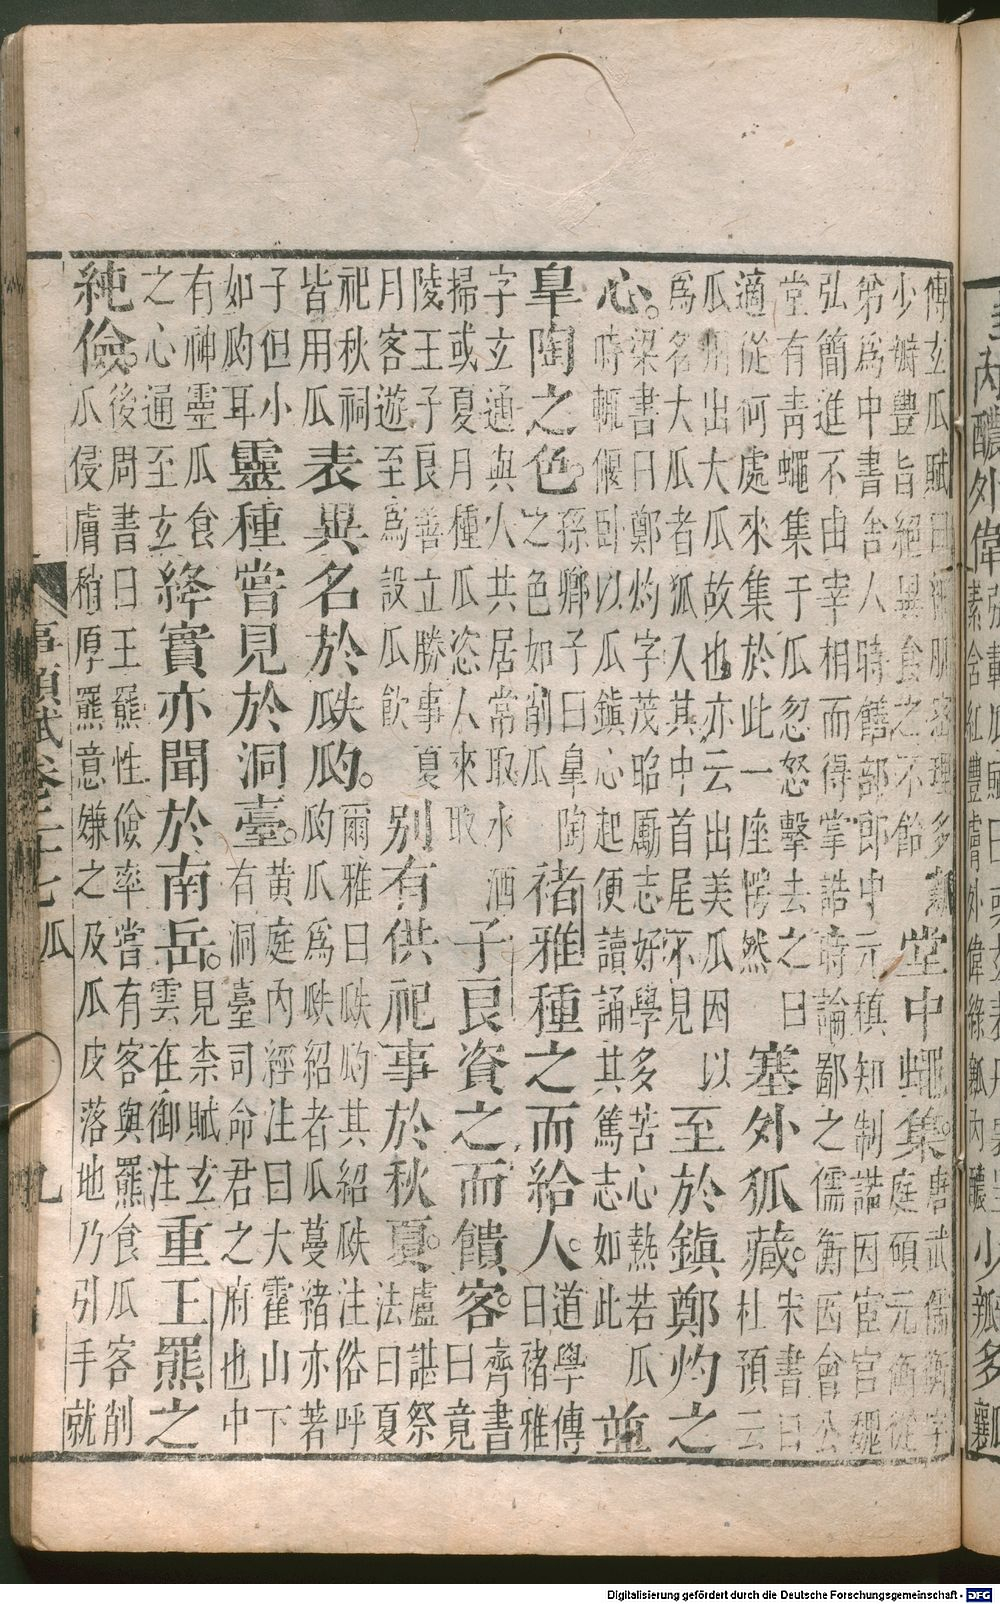 內醲外偉 素含紅豐膚外偉綠瓤內醲 少瓣多
傅玄瓜賦曰細肌密理多瓤
少瓣豐旨絕異食之不飴 堂中蠅集。 唐武儒衡字
庭碩元衡從
弟為中書舍人時饍部郎中元稹知制誥因宦官魏
弘簡進不由宰相而得掌誥時論鄙之儒衡因會公
堂有青蠅集于瓜忽怒擊去之曰
適從何處來集於此一座愕然 塞外狐藏。 宋書曰
杜預云
瓜州出大瓜故也亦云出美瓜因以
為名大瓜者狐入其中首尾不見 至於鎮鄭灼之
心。 梁書曰鄭灼字茂昭勵志好學多苦心熱若瓜
時輒偃卧以瓜鎮心起便讀誦其篤志如此 並
皐陶之色。 孫卿子曰皐陶
之色如削瓜 禇雅種之而給人。 道學傳
曰禇雅
字玄通與人共居常取水洒
掃或夏月種瓜恣人來取 子良資之而饋客。 齊書
曰竟
陵王子良善立勝事夏
月客遊至為設瓜飲 別有供祀事於秋夏。 盧諶祭
法曰夏
祀秋祠
皆用瓜 表異名於瓞瓝。 爾雅曰瓞瓝其紹瓞注俗呼
瓝瓜為瓞紹者瓜蔓褚亦著
子但小
如瓝耳 靈種嘗見於洞臺。 黃庭內經注曰大霍山下
有洞臺司命君之府也中
有神靈瓜食
之心通至玄 絳實亦聞於南岳。 見柰賦玄
雲在御注 重王羆之
純儉。 後周書曰王羆性儉率嘗有客與羆食瓜客削
瓜侵膚稍厚羆意嫌之及瓜皮落地乃引手就
事類賦卷二十七 瓜 九
Digitalisierung gefördert durch die Deutsche Forschungsgemeinschaft - DFG